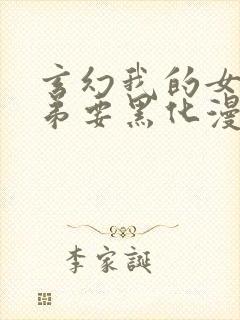 玄幻我的女
弟要黑化漫
李家誕